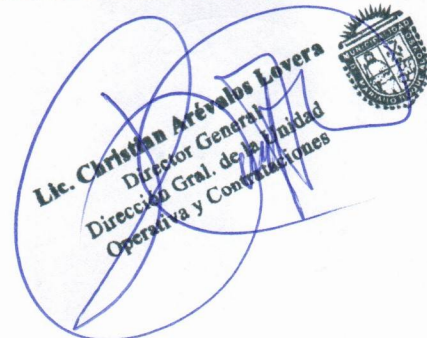 Lic. Christian Arévalos Lovera
Director General
Dirección Gral. de la Unidad
Operativa y Contrataciones
UNIVERSIDAD